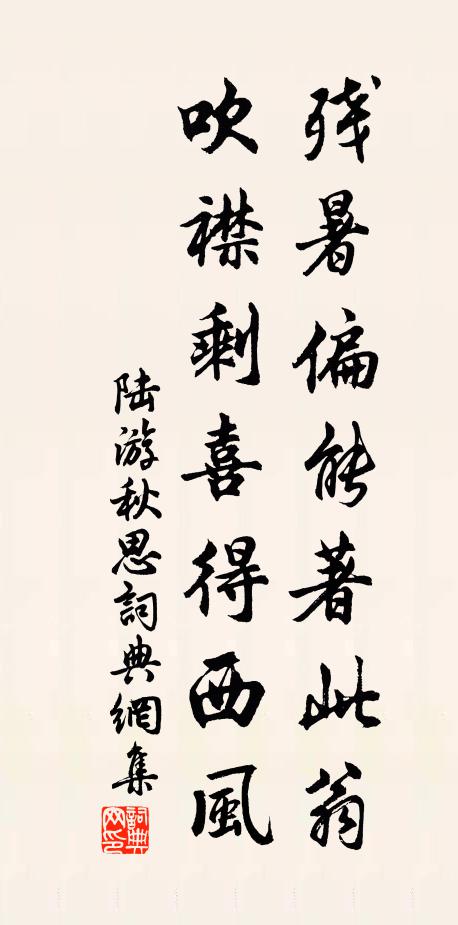 残暑偏能著此翁
吹襟剩喜得西風
陆游秋思詞典網集
詞典網印